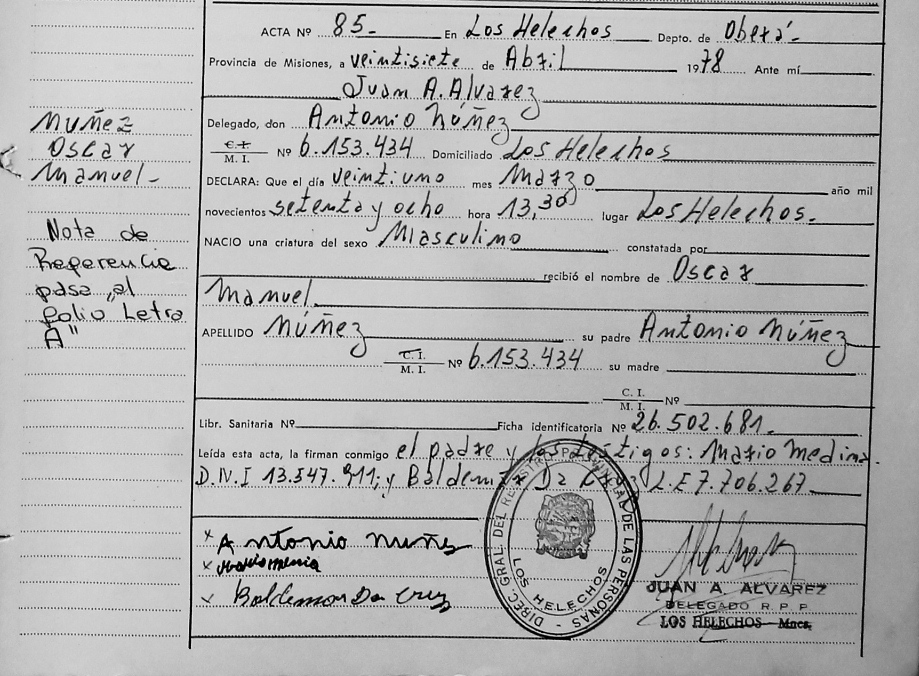 ACTA Nº 85- En Los Helechos Depto. de Oberá-
Provincia de Misiones, a veintisiete de Abril 1978 Ante mí
Juan A. Alvarez
Delegado, don Antonio Núñez
C.I. M. I. Nº 6.153.434 Domiciliado Los Helechos
DECLARA: Que el día veintiuno mes Marzo año mil
novecientos setenta y ocho hora 13,30 lugar Los Helechos.
NACIO una criatura del sexo Masculino constatada por
recibió el nombre de Oscar
Manuel
APELLIDO Núñez su padre Antonio Núñez
C. I. M. I. Nº 6.153.434 su madre
C. I. M. I. Nº
Libr. Sanitaria Nº Ficha identificatoria Nº 26.502.681-
Leída esta acta, la firman conmigo el padre y los testigos: Mario Medina
D.N.I 13.547.911; y Baldemar Da Cruz L.E 7.706.267
Muñez
Oscar
Manuel-
Nota de
Referencia
pasa al
folio Letra
A"
x Antonio Nuñez
x
Baldemar Da Cruz
DIREC. GRAL. DEL REGISTRO PROVINCIAL DE LAS PERSONAS
LOS HELECHOS
JUAN A. ALVAREZ
DELEGADO R. P. P
LOS HELECHOS - Mnes.